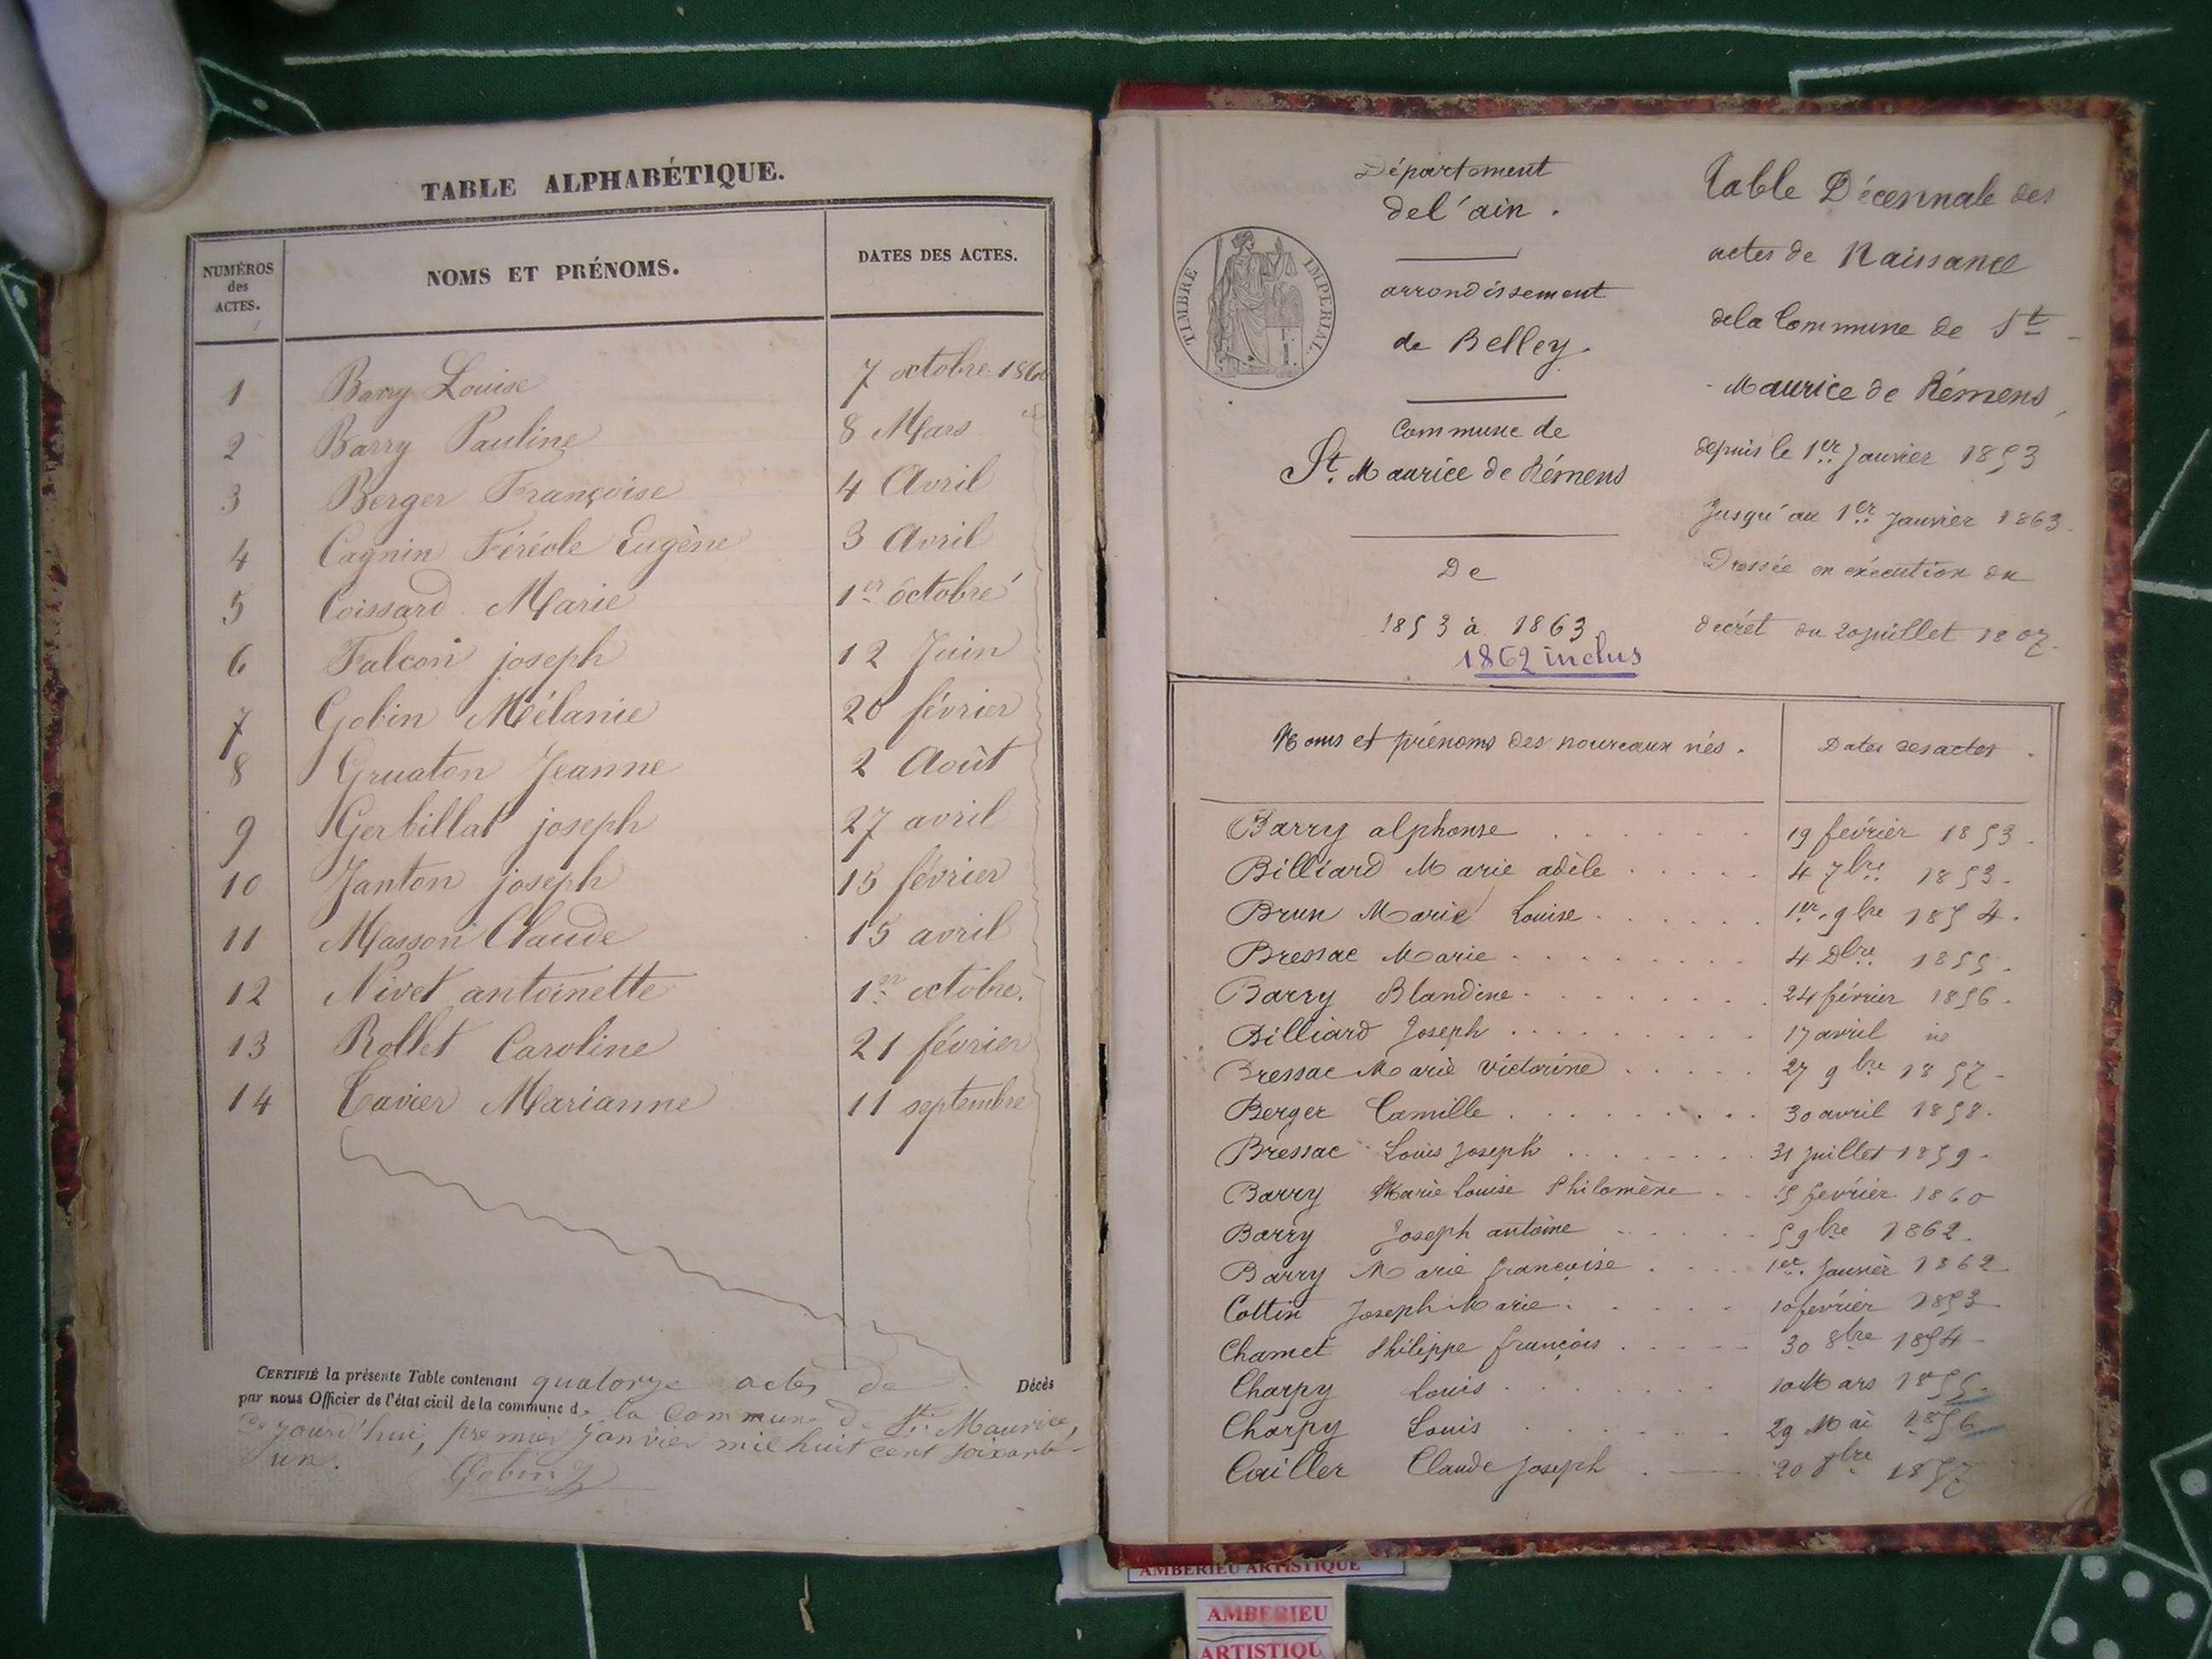 TABLE ALPHABÉTIQUE.
NUMÉROS des ACTES.
NOMS ET PRÉNOMS.
DATES DES ACTES.
1 Barry Louise 7 octobre 1860
2 Barry Pauline 8 Mars
3 Berger Françoise 4 Avril
4 Cagnin Féréole Eugène 3 Avril
5 Coissard Marie 1er octobre
6 Falcon joseph 12 Juin
7 Gobin Mélanie 20 février
8 Gruaton Jeanne 2 Août
9 Gerbillat joseph 27 avril
10 Janton joseph 15 février
11 Masson Claude 15 avril
12 Nivet antoinette 1er octobre.
13 Rollet Caroline 21 février
14 Tavier Marianne 11 septembre
CERTIFIÉ la présente Table contenant quatorze actes de Décès
par nous Officier de l'état civil de la commune de la Commune de St. Maurice,
Ce jourd'hui, premier Janvier mil huit cent soixante-
un.
Gobin
Département
de l'ain.
TIMBRE IMPERIAL.
arrondissement
de Belley.
Commune de
St. Maurice de Rémens
De
1853 à 1863
1862 inclus
Table Décennale des
actes de Naissance
de la Commune de St
Maurice de Rémens,
depuis le 1er Janvier 1853
Jusqu'au 1er Janvier 1863.
Dressée en exécution du
décrét du 20 juillet 1807.
Noms et prénoms des nouveaux nés. Dates des actes.
Barry alphonse 19 février 1853.
Billiard Marie adèle 4 7bre 1853.
Brun Marie Louise 1er 9bre 1854.
Bressac Marie 4 Dbre 1855.
Barry Blandine 24 février 1856.
Billiard Joseph 17 avril
Bressac Marie Victorine 27 9bre 1857
Berger Camille 30 avril 1858.
Bressac Louis Joseph 31 juillet 1859.
Barry Marie Louise Philomène 15 février 1860
Barry Joseph antoine 5 9bre 1862.
Barry Marie françoise 1er Janvier 1862
Cottin Joseph Marie 10 février 1853
Chamet Philippe françois 30 8bre 1854
Charpy Louis 10 Mars 1855
Charpy Louis 29 Mai 1856
Cailler Claude Joseph 20 8bre 1857
AMBERIEU ARTISTIQUE
AMBERIEU
ARTISTIQU